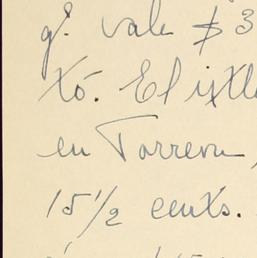 qe. vale $3
tó. El ixtl
en Torreon,
15 1/2 cents.